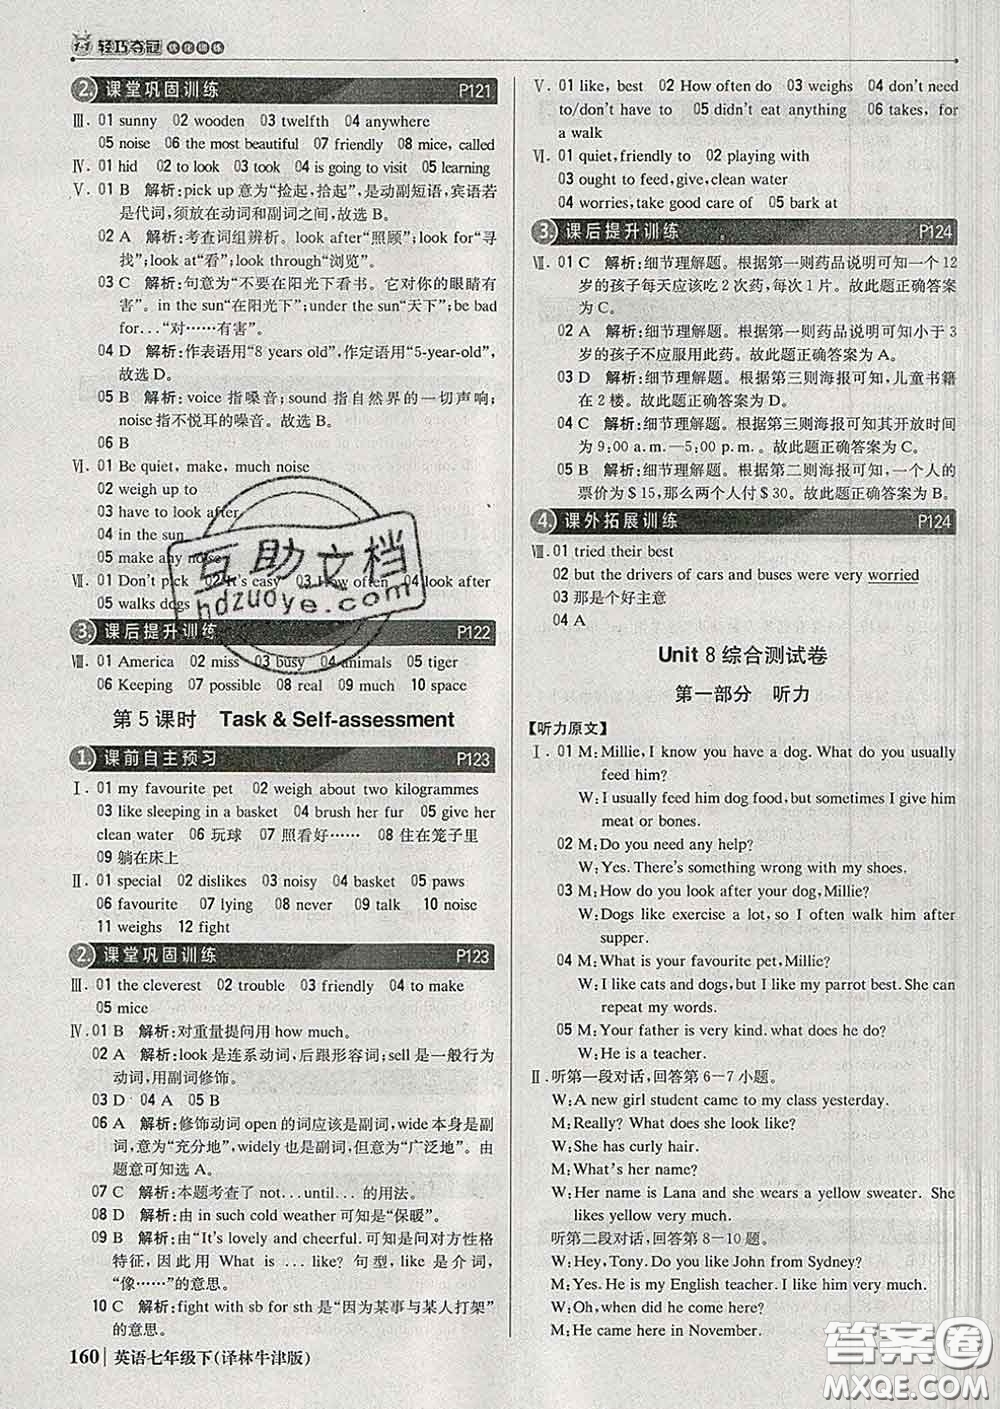 1+1 轻巧夺冠 优化训练
2. 课堂巩固训练 P121
Ⅲ. 01 sunny 02 wooden 03 twelfth 04 anywhere
05 noise 06 the most beautiful 07 friendly 08 mice, called
Ⅳ. 01 hid 02 to look 03 took 04 is going to visit 05 learning
Ⅴ. 01 B 解析:pick up 意为“捡起，拾起”，是动副短语，宾语若
是代词，须放在动词和副词之间，故选 B。
02 A 解析:考查词组辨析。look after“照顾”；look for“寻
找”；look at“看”；look through“浏览”。
03 C 解析:句意为“不要在阳光下看书。它对你的眼睛有
害”。in the sun“在阳光下”；under the sun“天下”；be bad
for...“对……有害”。
04 D 解析:作表语用“8 years old”，作定语用“5-year-old”，
故选 D。
05 B 解析:voice 指嗓音；sound 指自然界的一切声响；
noise 指不悦耳的噪音。故选 B。
06 B
Ⅵ. 01 Be quiet, make, much noise
02 weigh up to
03 have to look after
04 in the sun
05 make any noise
Ⅶ. 01 Don't pick 02 It's easy 03 How often 04 look after
05 walks dogs
3. 课后提升训练 P122
Ⅷ. 01 America 02 miss 03 busy 04 animals 05 tiger
06 Keeping 07 possible 08 real 09 much 10 space
第 5 课时 Task & Self-assessment
1. 课前自主预习 P123
Ⅰ. 01 my favourite pet 02 weigh about two kilogrammes
03 like sleeping in a basket 04 brush her fur 05 give her
clean water 06 玩球 07 照看好…… 08 住在笼子里
09 躺在床上
Ⅱ. 01 special 02 dislikes 03 noisy 04 basket 05 paws
06 favourite 07 lying 08 never 09 talk 10 noise
11 weighs 12 fight
2. 课堂巩固训练 P123
Ⅲ. 01 the cleverest 02 trouble 03 friendly 04 to make
05 mice
Ⅳ. 01 B 解析:对重量提问用 how much。
02 A 解析:look 是连系动词，后跟形容词；sell 是一般行为
动词，用副词修饰。
03 D 04 A 05 B
06 A 解析:修饰动词 open 的词应该是副词，wide 本身是副
词，意为“充分地”，widely 也是副词，但意为“广泛地”。由
题意可知选 A。
07 C 解析:本题考查了 not...until... 的用法。
08 D 解析:由 in such cold weather 可知是“保暖”。
09 B 解析:由“It's lovely and cheerful. 可知是问对方性格
特征，因此用 What is ... like? 句型，like 是介词，
“像……”的意思。
10 C 解析:fight with sb for sth 是“因为某事与某人打架”
的意思。
160 英语七年级下(译林牛津版)
Ⅴ. 01 like, best 02 How often do 03 weighs 04 don't need
to/don't have to 05 didn't eat anything 06 takes, for
a walk
Ⅵ. 01 quiet,friendly to 02 playing with
03 ought to feed,give,clean water
04 worries,take good care of 05 bark at
3. 课后提升训练 P124
Ⅶ. 01 C 解析:细节理解题。根据第一则药品说明可知一个 12
岁的孩子每天应该吃 2 次药，每次 1 片。故此题正确答案
为 C。
02 A 解析:细节理解题。根据第一则药品说明可知小于 3
岁的孩子不应服用此药。故此题正确答案为 A。
03 D 解析:细节理解题。根据第三则海报可知,儿童书籍
在 2 楼。故此题正确答案为 D。
04 C 解析:细节理解题。根据第三则海报可知其开放时间
为 9:00 a.m.—5:00 p.m.。故此题正确答案为 C。
05 B 解析:细节理解题。根据第二则海报可知，一个人的
票价为 $ 15,那么两个人付 $ 30。故此题正确答案为 B。
4. 课外拓展训练 P124
Ⅷ. 01 tried their best
02 but the drivers of cars and buses were very worried
03 那是个好主意
04 A
Unit 8 综合测试卷
第一部分 听力
【听力原文】
Ⅰ. 01 M: Millie, I know you have a dog. What do you usually
feed him?
W: I usually feed him dog food, but sometimes I give him
meat or bones.
02 M: Do you need any help?
W: Yes. There's something wrong with my shoes.
03 M: How do you look after your dog, Millie?
W: Dogs like exercise a lot, so I often walk him after
supper.
04 M: What is your favourite pet, Millie?
W: I like cats and dogs, but I like my parrot best. She can
repeat my words.
05 M: Your father is very kind. what does he do?
W: He is a teacher.
Ⅱ. 听第一段对话，回答第 6—7 小题。
W: A new girl student came to my class yesterday.
M: Really? What does she look like?
W: She has curly hair.
M: What's her name?
W: Her name is Lana and she wears a yellow sweater. She
likes yellow very much.
听第二段对话，回答第 8—10 题。
W: Hey, Tony. Do you like John from Sydney?
M: Yes. He is my English teacher. I like him very much.
W: Oh, when did he come here?
M: He came here in November.
互助文档
hdzuoye.com
答案圈
MXQE.COM